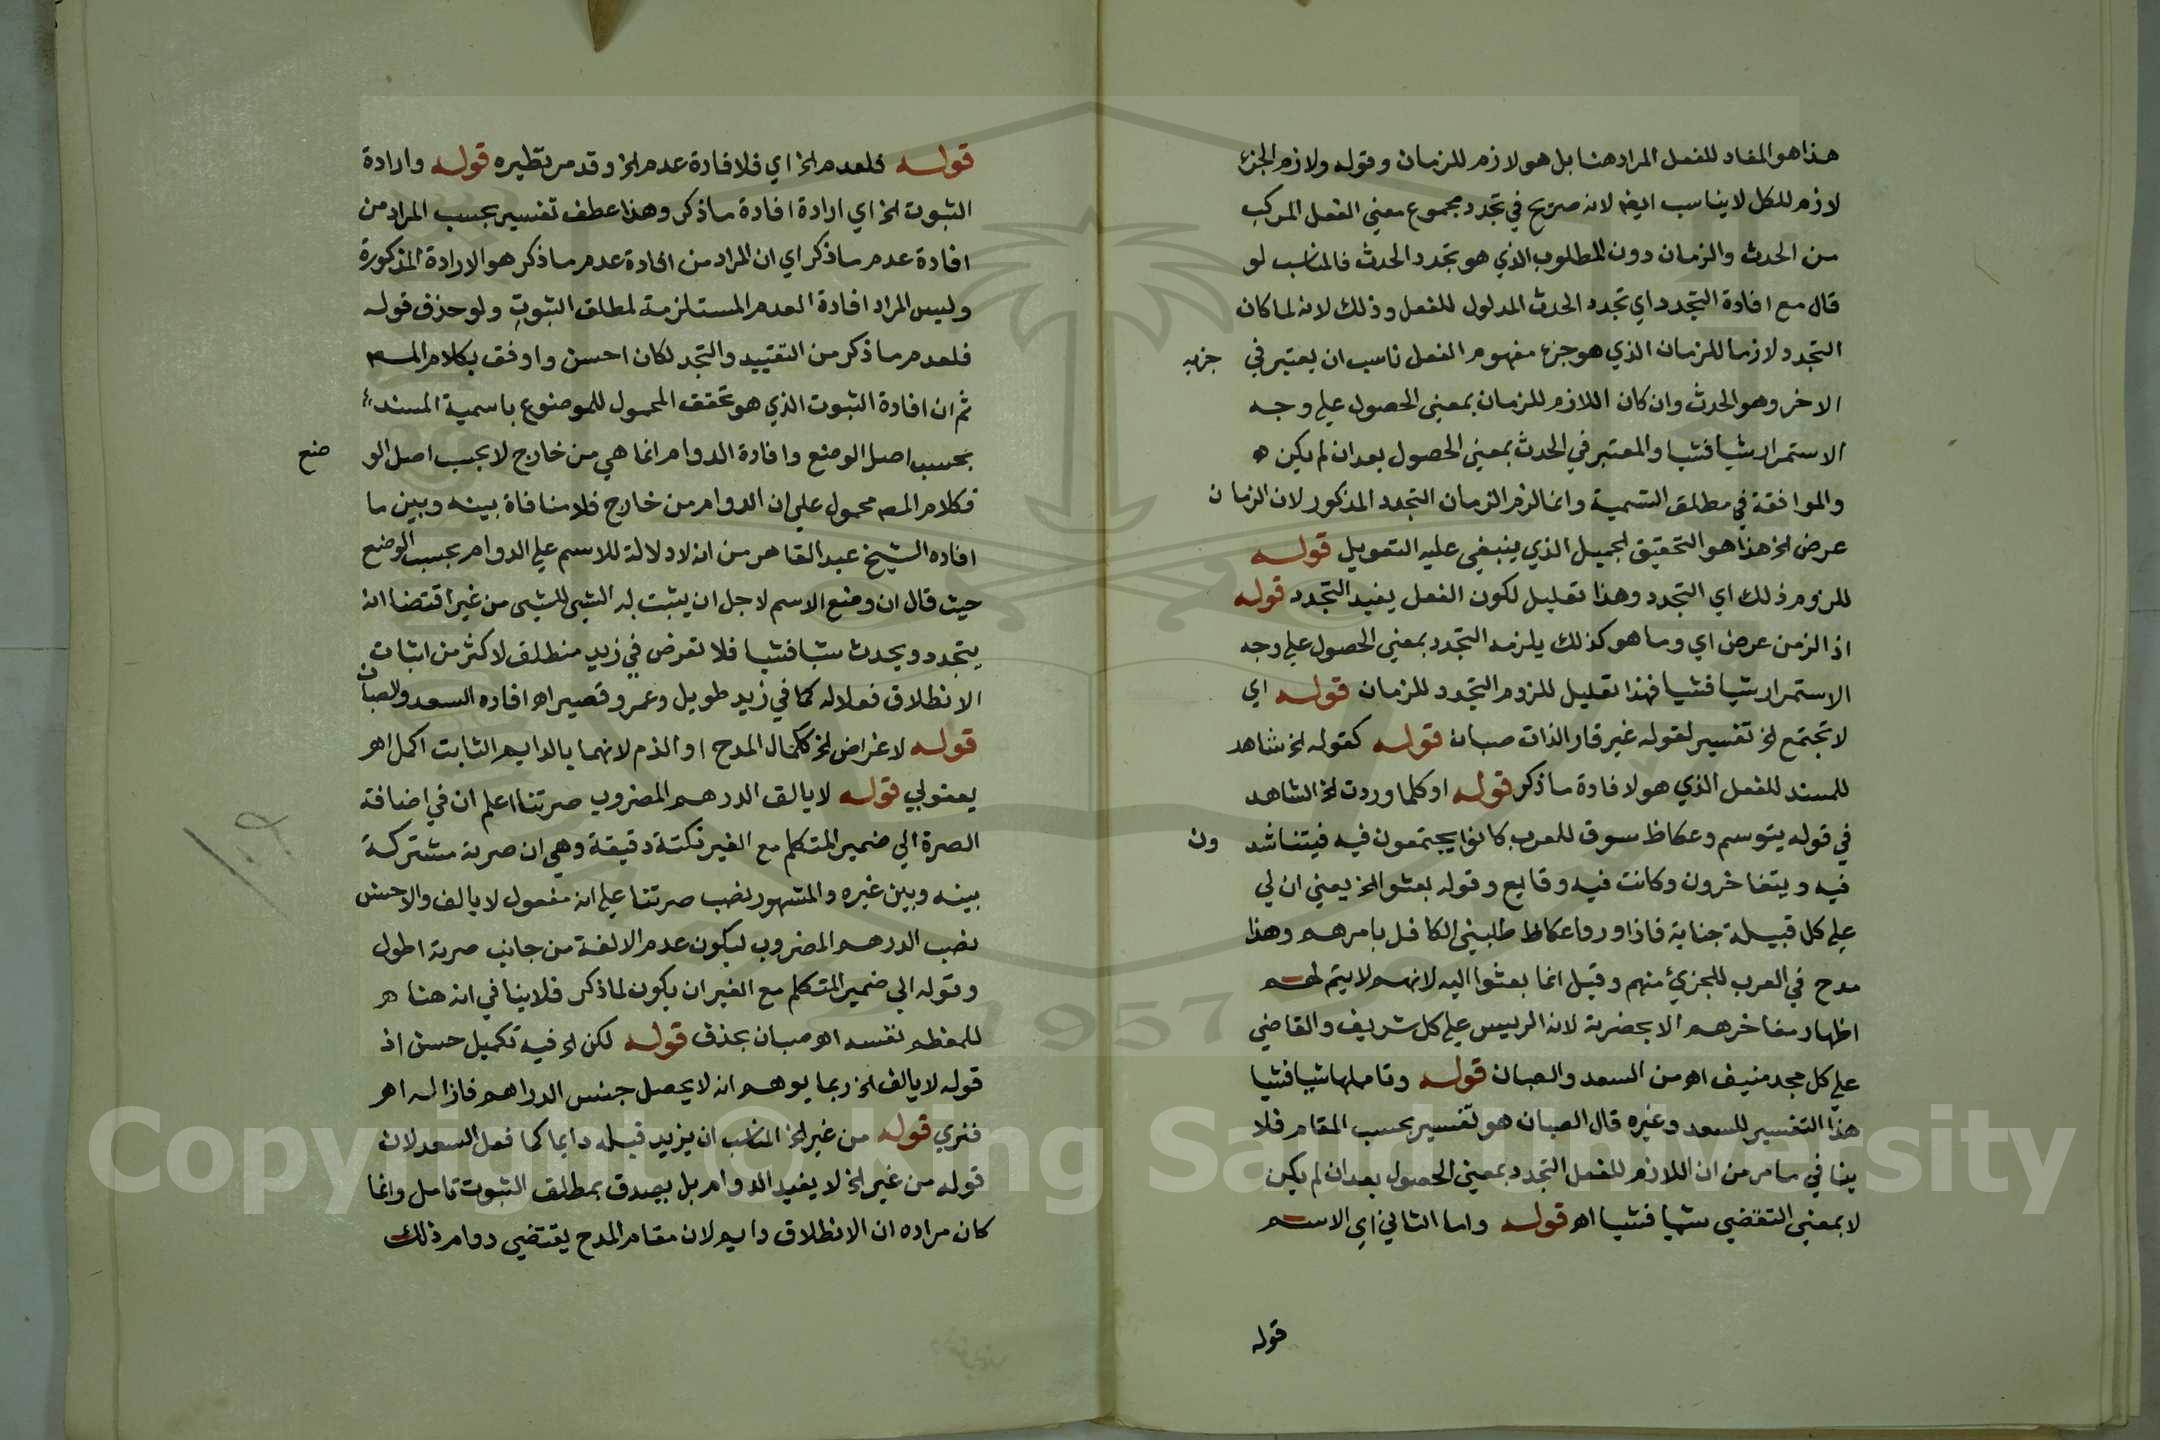 هذا هو المفاد للفعل المراد هنا بل هو لازم للزمان وقوله ولازم الجزء
لازم للكل لا يناسب ايضا لانه صريح في تجدد مجموع معني الفعل المركب
من الحدث والزمان دون المطلوب الذي هو تجدد الحدث فالمناسب لو
قال مع افادة التجدد اي تجدد الحدث المدلول للفعل وذلك لانه لما كان
التجدد لازما للزمان الذي هو جزء مفهوم الفعل ناسب ان يعتبر في جزيه
الاخر وهو الحدث وان كان اللازم للزمان بمعني الحصول علي وجه
الاستمرار شيا فشيا والمعتبر في الحدث بمعني الحصول بعد ان لم يكن
والموافقة في مطلق التسمية وانما لزم الزمان التجدد المذكور لان الزمان
عرض الخ هذا هو التحقيق الجميل الذي ينبغي عليه التعويل قوله
للزوم ذلك اي التجدد وهذا تعليل لكون الفعل يفيد التجدد قوله
اذ الزمن عرض اي وما هو كذلك يلزمه التجدد بمعني الحصول علي وجه
الاستمرار شيا فشيا فهذا تعليل للزوم التجدد للزمان قوله اي
لا تجتمع الخ تفسير لقوله غير قار الذات صبان قوله كقوله الخ شاهد
للمسند للفعل الذي هو لافادة ما ذكر قوله او كلما وردت الخ الشاهد
في قوله يتوسم وعكاظ سوق للعرب كانوا يجتمعون فيه فيتناشدون
فيه ويتفاخرون وكانت فيه وقايع وقوله بعثوا الخ يعني ان لي
علي كل قبيلة جناية فاذا وردوا عكاظ طلبني الكافل بامرهم وهذا
مدح في العرب للجزئ منهم وقيل انما بعثوا اليه لانهم لا يتم لهم
اظهار مفاخرهم الا بحضرته لانه الرييس علي كل شريف والقاضي
علي كل مجد منيف اهـ من السعد والصبان قوله وتاملها شيا فشيا
هذا التفسير للسعد وغيره قال الصبان هو تفسير بحسب المقام فلا
ينافي ما مر من ان اللازم للفعل التجدد بمعني الحصول بعد ان لم يكن
لا بمعني التقضي شيا فشيا اهـ قوله واما الثاني اي الاسم
قوله
قوله فلعدم الخ اي فلافادة عدم الخ وقد مر نظيره قوله وارادة
الثبوت الخ اي ارادة افادة ما ذكر وهذا عطف تفسير بحسب المراد من
افادة عدم ما ذكر اي ان المراد من افادة عدم ما ذكر هو الارادة المذكورة
وليس المراد افادة العدم المستلزمة لمطلق الثبوت ولو حذف قوله
فلعدم ما ذكر من التقييد والتجدد لكان احسن واوفق بكلام المص
ثم ان افادة الثبوت الذي هو تحقق المحمول للموضوع باسمية المسند
بحسب اصل الوضع وافادة الدوام انما هي من خارج لا بحسب اصل الوضع
فكلام المص محمول علي ان الدوام من خارج فلا منافاة بينه وبين ما
افاده الشيخ عبد القاهر من انه لا دلالة للاسم علي الدوام بحسب الوضع
حيث قال ان وضع الاسم لاجل ان يثبت له الشي للشي من غير اقتضا انه
يتجدد ويحدث شيا فشيا فلا تعرض في زيد منطلق لاكثر من اثبات
الانطلاق فعلا له كما في زيد طويل وعمرو قصير اهـ افاده السعد والصبان
قوله لاغراض الخ ككمال المدح او الذم لانهما بالدايم الثابت اكمل اهـ
يعقوبي قوله لا يالف الدرهم المضروب صرتنا اعلم ان في اضافة
الصرة الي ضمير المتكلم مع الغير نكتة دقيقة وهي ان صرته مشتركة
بينه وبين غيره والمشهور نصب صرتنا علي انه مفعول لا يالف والاحسن
نصب الدرهم المضروب ليكون عدم الالفة من جانب صرته اطول
وقوله الي ضمير المتكلم مع الغير ان يكون لما ذكر فلا ينافي انه هنا
للمعظم نفسه اهـ صبان بحذف قوله لكن الخ فيه تكميل حسن اذ
قوله لا يالف الخ ربما يوهم انه لا يحصل جنس الدراهم فازاله اهـ
فنري قوله من غير الخ المناسب ان يزيد قبله دايما كما فعل السعد لان
قوله من غير الخ لا يفيد الدوام بل يصدق بمطلق الثبوت تامل وانما
كان مراده ان الانطلاق دايم لان مقام المدح يقتضي دوام ذلك
Copyright © King Saud University
1957